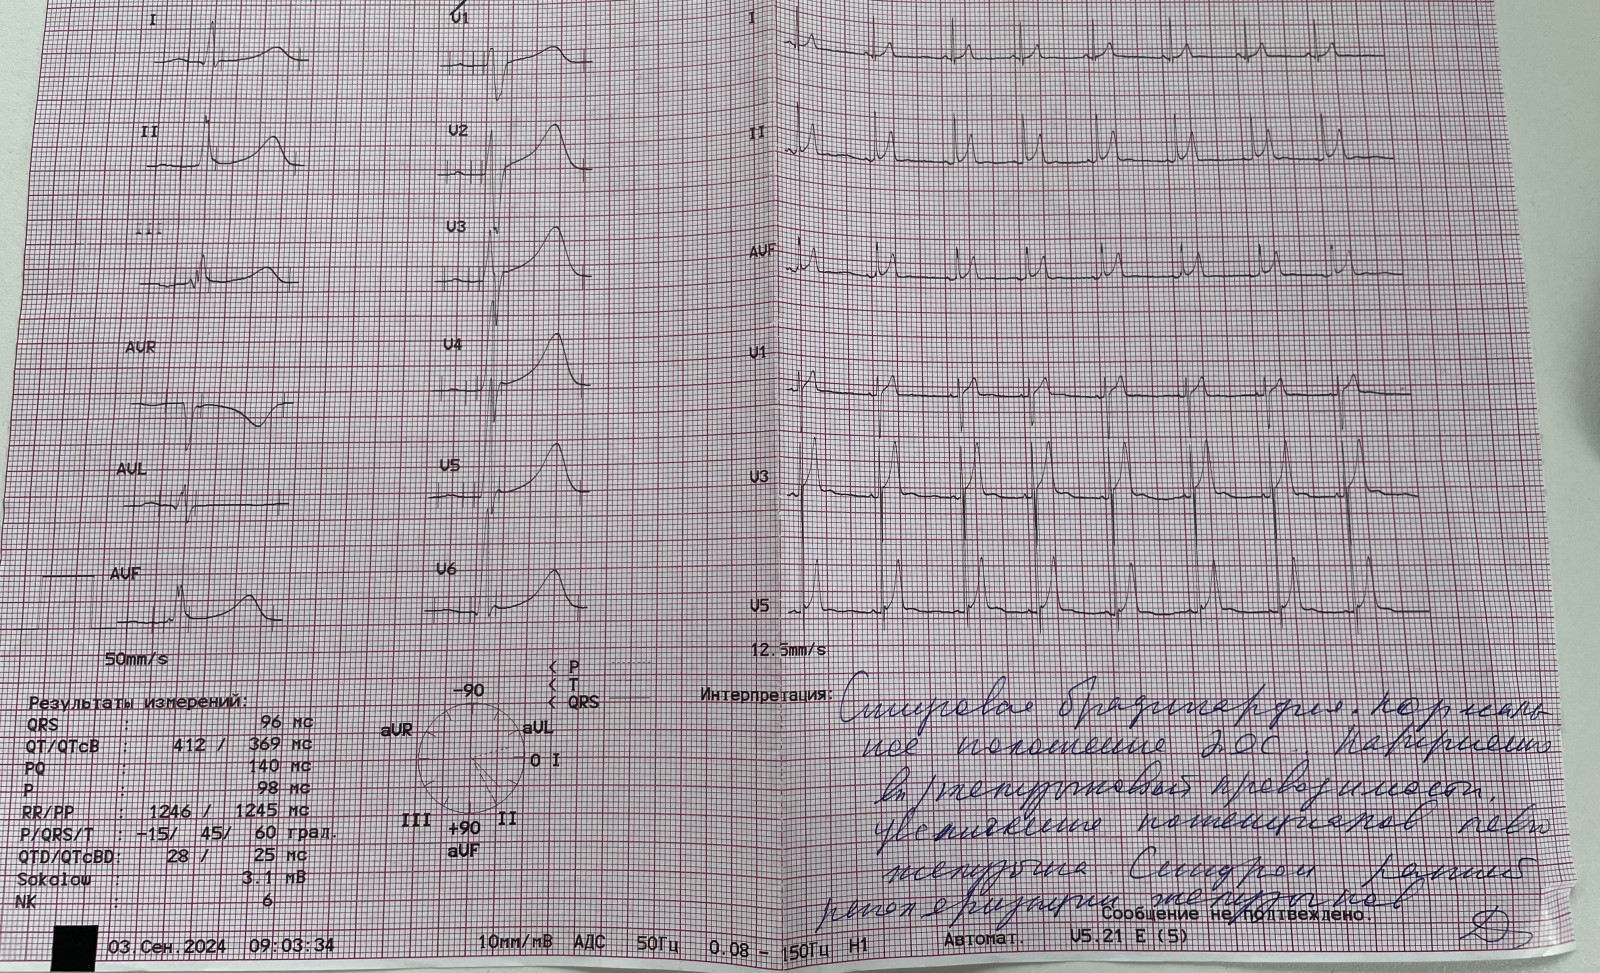 I
II
III
AVR
AVL
AVF
50mm/s
V1
V2
V3
V4
V5
V6
I
II
AVF
V1
V3
V5
12.5mm/s
Результаты измерений:
QRS : 96 мс
QT/QTcB : 412 / 369 мс
PQ : 140 мс
P : 98 мс
RR/PP : 1246 / 1245 мс
P/QRS/T : -15/ 45/ 60 град.
QTD/QTcBD: 28 / 25 мс
Sokolow : 3.1 мВ
NK : 6
< P
< T
< QRS
-90
aVR aVL
0 I
III +90 II
aVF
Интерпретация: Синусовая брадикардия. Нормаль
ное положение ЭОС. Нарушение
вн/желудочковой проводимости.
увеличение потенциалов лево
желудочка. Синдром ранней
реполяризации желудочков
Сообщение не подтвеждено.
03.Сен.2024 09:03:34 10mm/мВ АДС 50Гц 0.08 - 150Гц Н1 Автомат. V5.21 E (5)